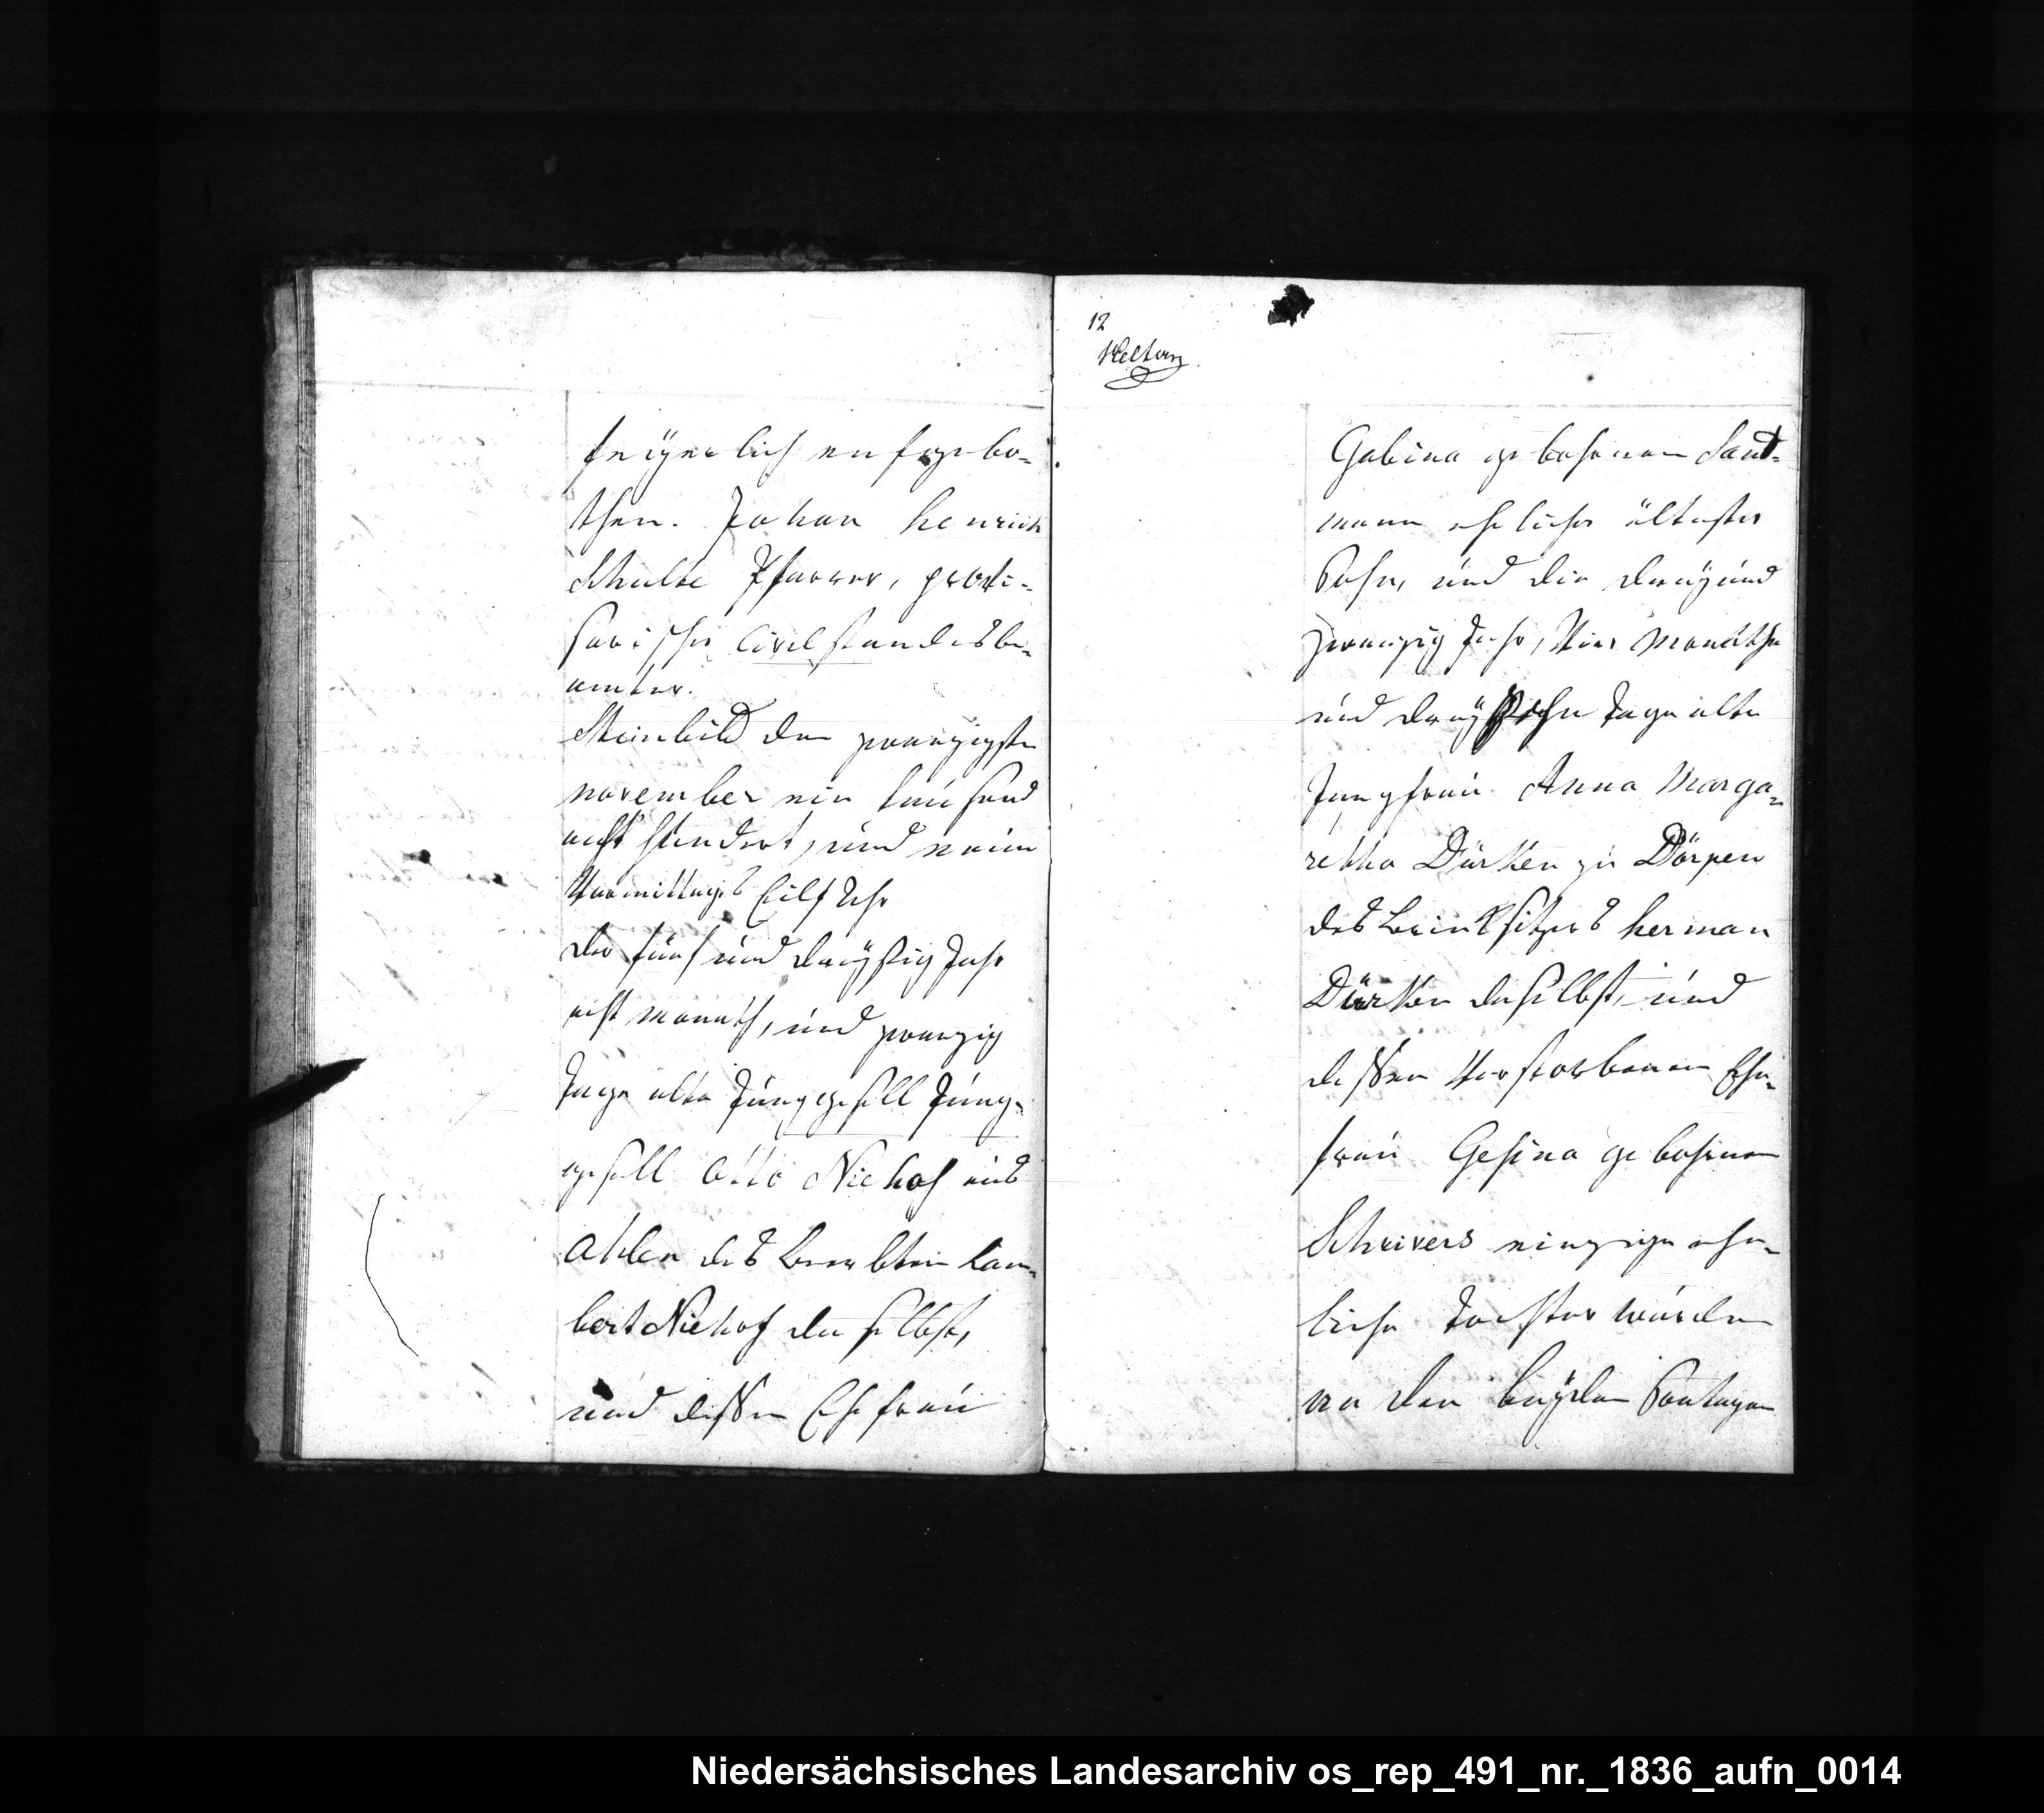 feÿerlich aufgebo-
then. Johan henrich
Schulte Pfarrer, provi-
sorischer Civilstandesbe-
amter.
Steinbild den zwanzigsten
november ein tausend
acht hundert, und neun
Vormittags Eilf Uhr
der fünf und dreÿßig Jahr
acht Monath, und zwanzig
Tage alte Junggesell Jung-
gesell Otto Niehof aus
Ahlen des Beerbten Lam-
bert Niehof daselbst,
und dessen Ehefrau
12
Gabina gebohrnen Sant-
mann ehelicher ältester
Sohn, und die dreÿ und
zwanzig Jahr, Vier Monathe
und dreÿzehn Tage alte
Jungfrau Anna Marga-
retha Dürken zu Dörpen
des Brinksitzers herman
Dürken daselbst, und
dessen Verstorbenen Ehe-
frau Gesina gebohrnen
Schrivers einzige ehe-
liche Tochter wurden
an den beÿden Sontagen
Niedersächsisches Landesarchiv os_rep_491_nr._1836_aufn_0014